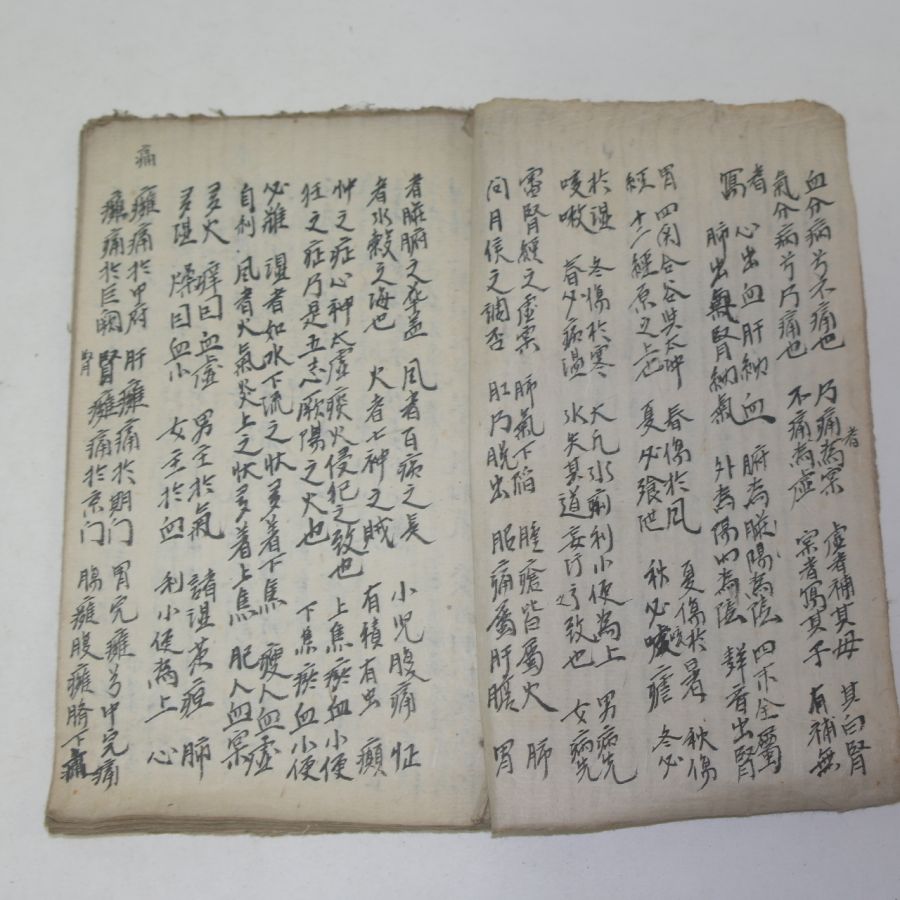 血分病兮不痛也 乃痛者為宲 虛者補其母 其曰腎
氣分病兮乃痛也 不痛為虛 宲者瀉其子 有補無
者 心出血肝納血 腑為 臟陽為陰 四 全屬
瀉 肺出氣腎納氣 外為陽內為陰 聲音出腎
胃 四関合谷與太冲 春傷於風 夏傷於暑 秋傷
經 十二經原之上也 夏必飱泄 秋必 瘧 冬必
於濕 冬傷於寒 大凡水 利小便為上 男病先
咳嗽 春必病溫 水失其道妄行 致也 女病先
審腎經之虛宲 肺氣下陷 腫瘡皆屬火 肺
问月侯之調否 肛乃脫出 眼痛屬肝膽 胃
者臟腑之華盖 風者百病之長 小児腹痛 怔
者水穀之海也 火者七神之賊 有積有虫 癲
忡之症心神太虛痰火侵犯之致也 上焦瘀血小便
狂之症乃是五志厥陽之火也 下焦瘀血小便
必難 濕者如水下流之狀多着下焦 瘦人血虛
自利 風者火氣炎上之狀多着上焦 肥人血宲
多火 痒曰血虛 男主於氣 諸濕 疸 肺
多濕 燥曰血小 女主於血 利小便為上 心
痛
癰痛於中府 肝癰痛於期门 胃完癰兮中完痛
癰痛於巨闕 腎 腎癰痛於京门 腸癰腹癰臍下痛